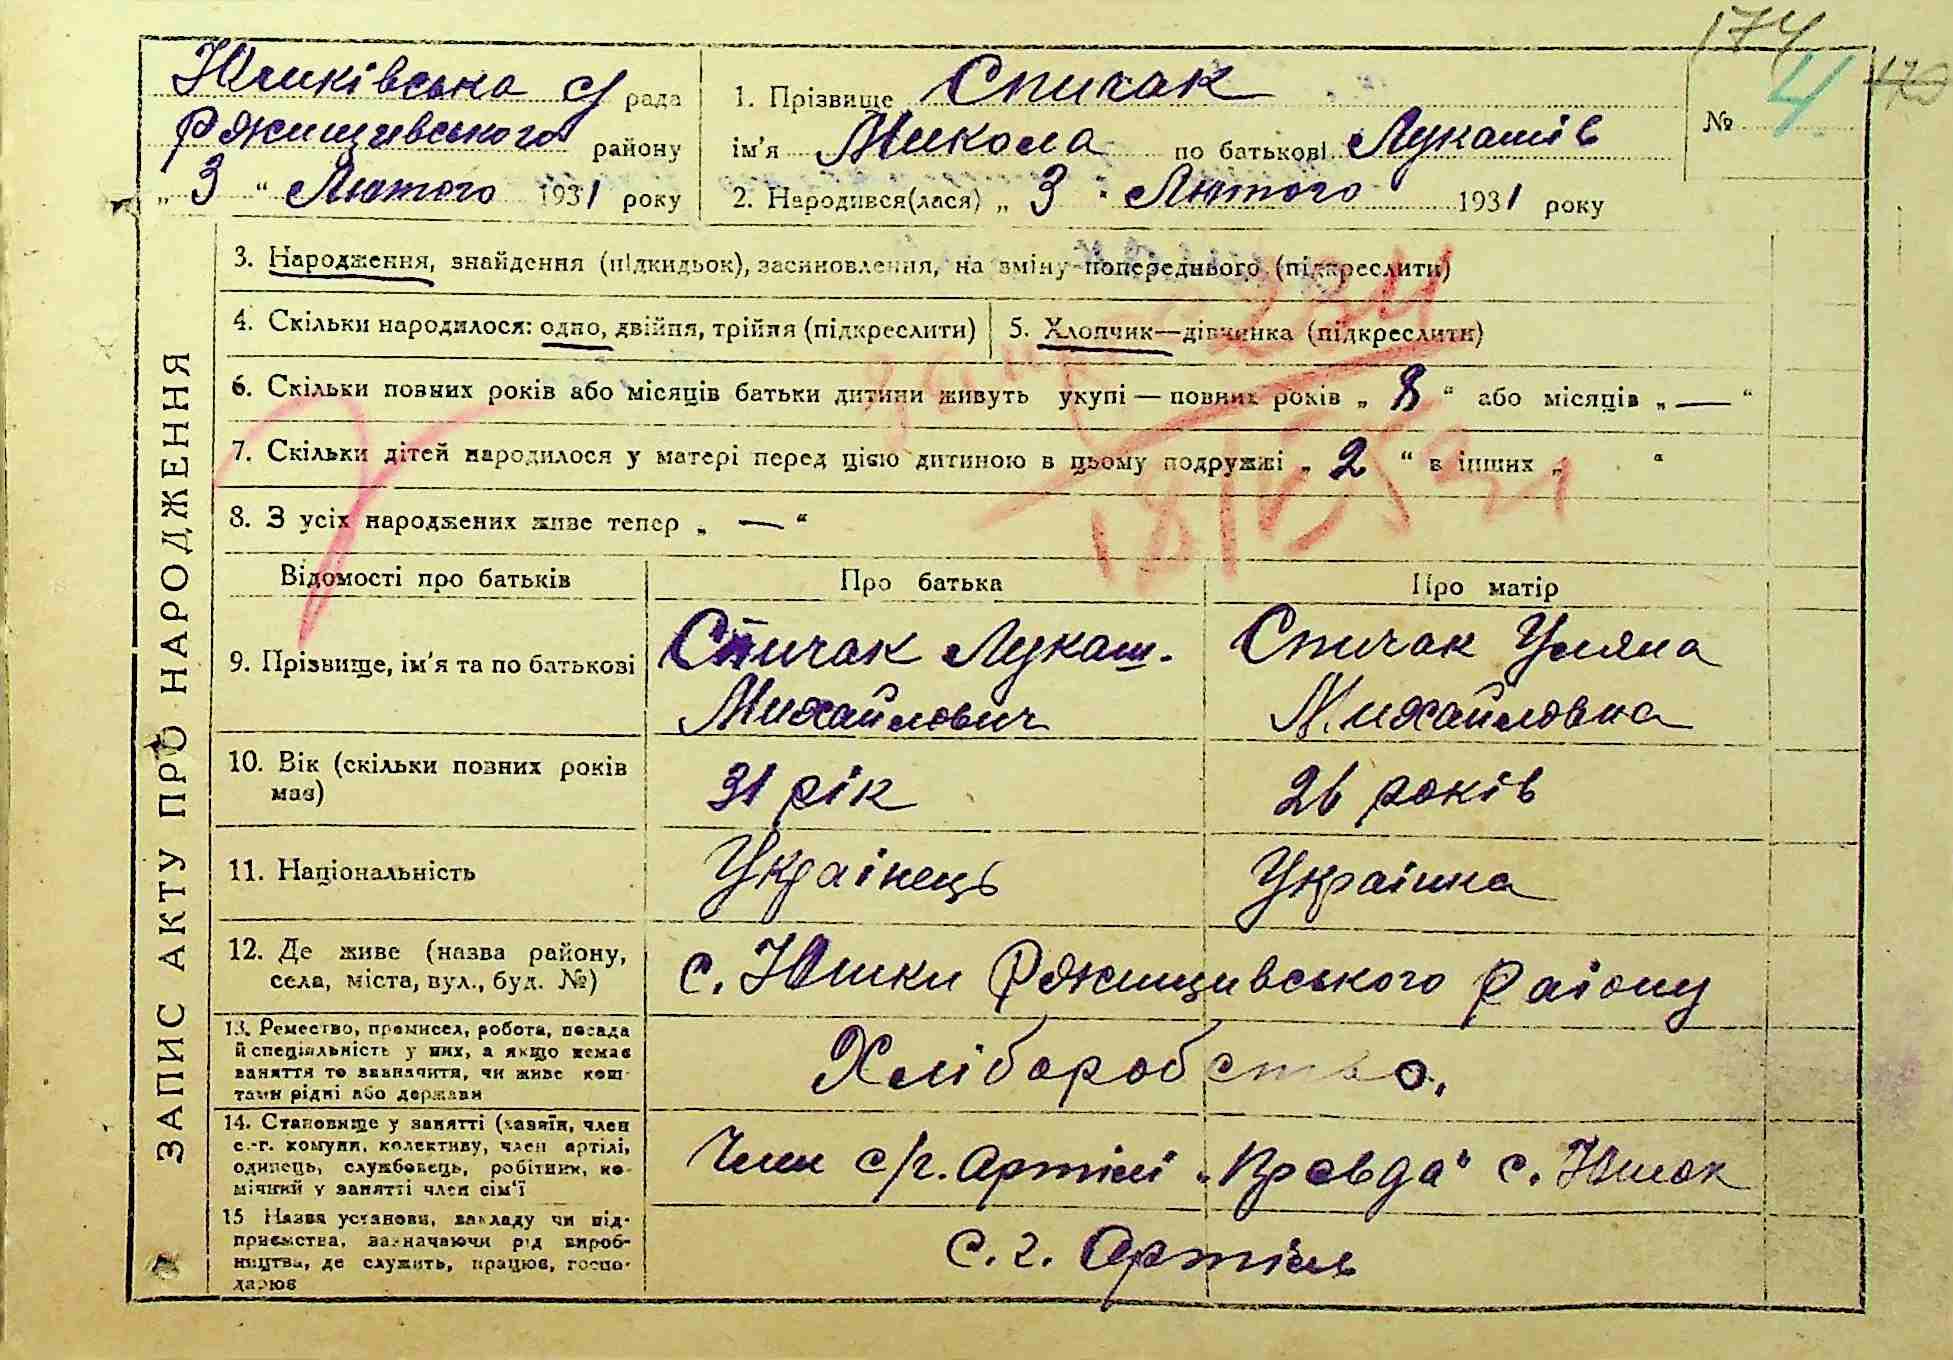 174
Юшківська с/ рада
Ржищивського району
„ 3 “ Лютого 1931 року
1. Прізвище Спичак
ім'я Микола по батькові Лукашів
2. Народився(лася) „ 3 “ Лютого 1931 року
№ 4
170
ЗАПИС АКТУ ПРО НАРОДЖЕННЯ
3. Народження, знайдення (підкидьок), засиновлення, на зміну попереднього (підкреслити)
4. Скільки народилося: одно, двійня, трійня (підкреслити)
5. Хлопчик—дівчинка (підкреслити)
6. Скільки повних років або місяців батьки дитини живуть укупі — повних років „ 8 “ або місяців „ — “
7. Скільки дітей народилося у матері перед цією дитиною в цьому подружжі „ 2 “ в інших „ “
8. З усіх народжених живе тепер „ — “
Відомості про батьків Про батька Про матір
9. Прізвище, ім'я та по батькові
Спичак Лукаш.
Михайлович
Спичак Уляна
Михайловна
10. Вік (скільки повних років
має)
31 рік
26 років
11. Національність
Українець
Українка
12. Де живе (назва району,
села, міста, вул., буд. №)
с. Юшки Ржищивського району
13. Ремество, промисел, робота, посада
й спеціяльність у них, а якщо немає
заняття то зазначити, чи живе кош-
тами рідні або держави
Хліборобство.
14. Становище у занятті (хазяїн, член
с.-г. комуни, колективу, член артілі,
одинець, службовець, робітник, по-
мічний у занятті член сім'ї
Член с/г. Артілі „Правда“ с. Юшок
15 Назва установи, закладу чи під-
приємства, зазначаючи рід вироб-
ництва, де служить, працює, госпо-
дарює
С. г. Артіль